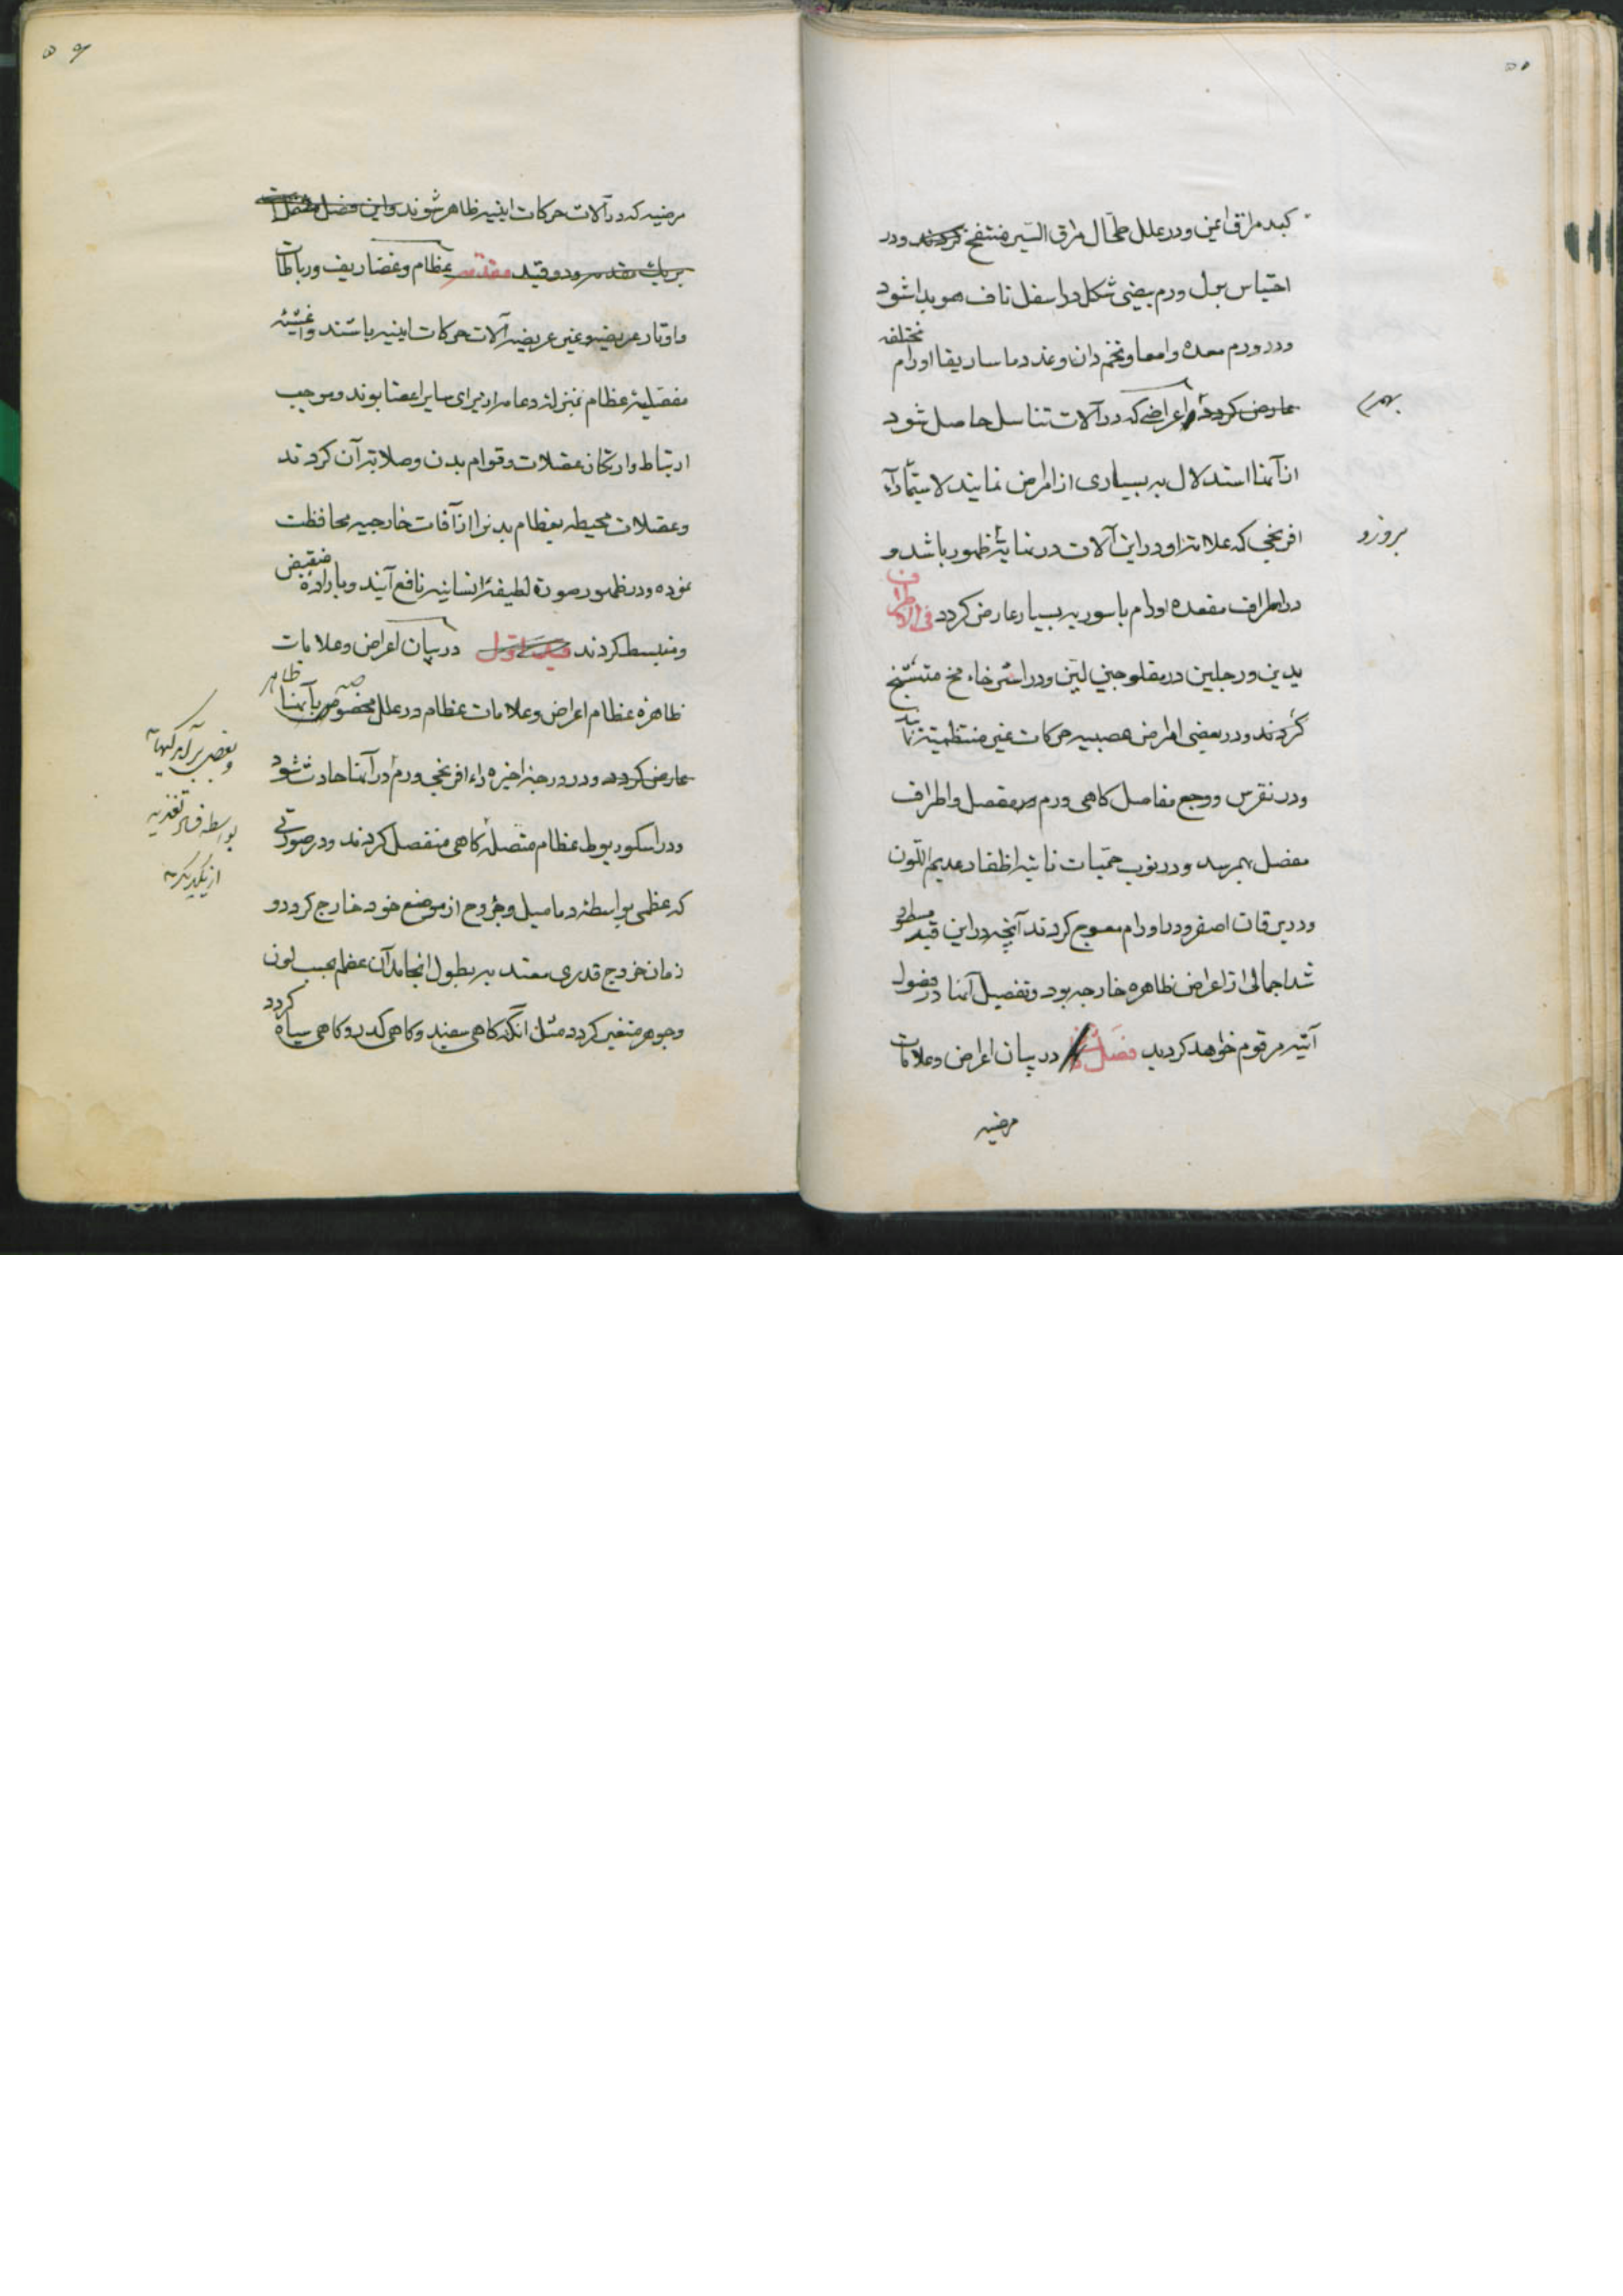 کبد مراق ایمن و در علل طحال مراق ایسر منتفخ کردند و در
احتباس بول ورم بیضی شکل در اسفل ناف هویدا شود
و در ورم معده و امعا و تخم دان و غدد ماساریقا اورام مختلفه
عارض کردد و اعراضی که در آلات تناسل حاصل شود
از آنها استدلال به بسیاری از امراض نمایند لاسیما داء
افرنجی که علامت او در این آلات در نهایت ظهور باشد و
بروز و
در اطراف مقعده اورام باسوریه بسیار عارض کردد فی الاطراف
یدین و رجلین در مفلوجین لین و در استرخاء مخ متشنج
کردند و در بعضی امراض عصبیه حرکات غیر منتظمه نمایند
و در نقرس و وجع مفاصل کاهی ورم در مفصل و اطراف
مفصل بهمرسد و در نوب حمیات نائبه اظفار عدیم اللون
و در یرقان اصفر و در اورام معوج کردند آنچه در این قید مسطور
شد اجمالی از اعراض ظاهره خارجه بود و تفصیل آنها در فصول
آتیه مرقوم خواهد کردید فصل در بیان اعراض و علامات
مرضیه
مرضیه که در آلات حرکات اینیه ظاهر شوند و این فصل مشتمل است
بر یک مقدمه و دو قید مقدمه عظام و غضاریف و رباطات
و اوتار عریضه و غیر عریضه آلات حرکات اینیه باشند و اغشیه
مفصلیه عظام بمنزله دعامه اند برای سایر اعضا بوند و موجب
ارتباط و ارتکاز عضلات و قوام بدن و صلابت آن کردند
و عضلات محیطه بعظام بدن را از آفات خارجیه محافظت
نموده و در ظهور صورة لطیفه انسانیه نافع آیند و باراده منقبض
و منبسط کردند قید اول در بیان اعراض و علامات
ظاهره عظام اعراض و علامات عظام در علل مخصوصه بآنها ظاهر
عارض کردد و در درجه اخیره داء افرنجی ورم در آنها حادث شود
و در اسکوربوط عظام متصله کاهی منفصل کردند و در صورتی
بواسطه فساد تغذیه
از یکدیگر
که عظمی بواسطه دمامیل و جروح از موضع خود خارج کردد و
زمان خروج قدری معتد به بطول انجامد آن عظم بحسب لون
و جوهر متغیر کردد مثل آنکه کاهی سفید و کاهی کدر و کاهی سیاه کردد